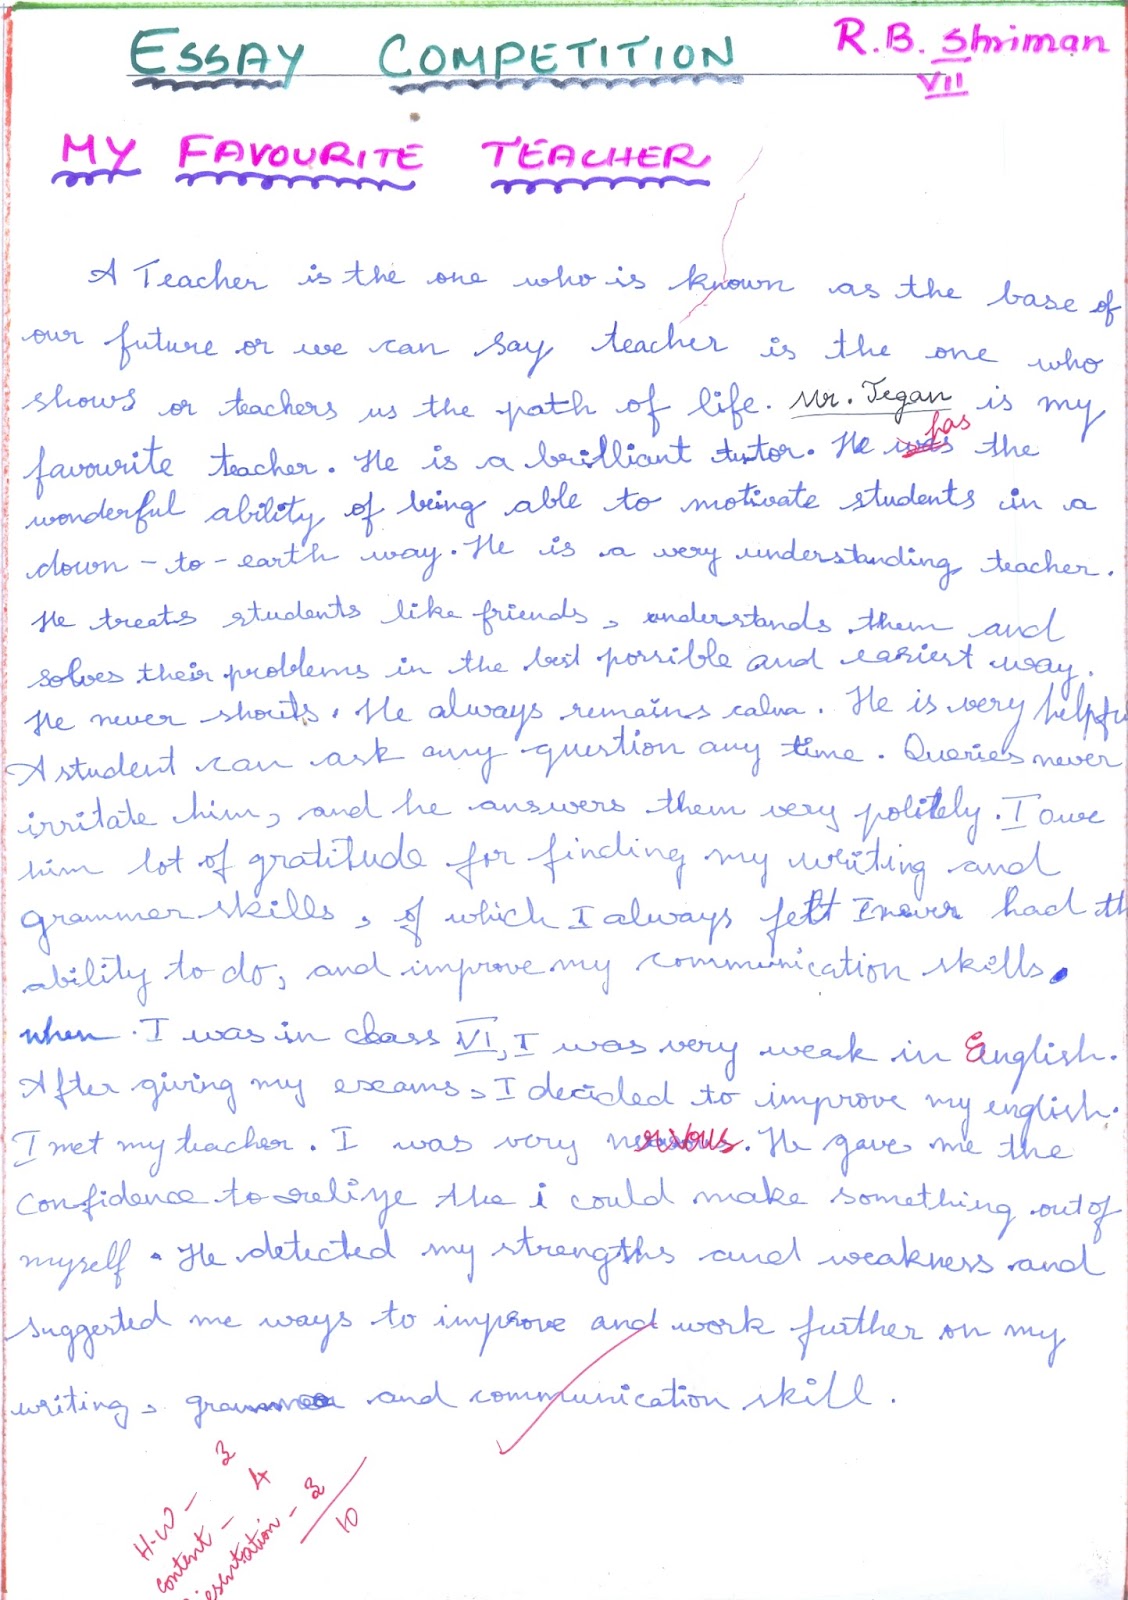 ESSAY COMPETITION
R.B. Shriman
VII
MY FAVOURITE TEACHER
A Teacher is the one who is known as the base of
our future or we can say teacher is the one who
shows or teachers us the path of life. Mr. Jegan is my
has
favourite teacher. He is a brilliant tutor. He was the
wonderful ability of being able to motivate students in a
down-to-earth way. He is a very understanding teacher.
He treats students like friends, understands them and
solves their problems in the best possible and easiest way.
He never shouts. He always remains calm. He is very helpfu
A student can ask any question any time. Queries never
irritate him, and he answers them very politely. I owe
him lot of gratitude for finding my writing and
grammer skills, of which I always felt I never had th
ability to do, and improve my communication skills.
when I was in class VI, I was very weak in English.
After giving my exams, I decided to improve my english.
I met my teacher. I was very nervous. He gave me the
confidence to relize the i could make something out of
myself. He detected my strengths and weakness and
suggested me ways to improve and work further on my
writing, grammer and communication skill.
H.W - 3
content - 4
esentation - 3
10